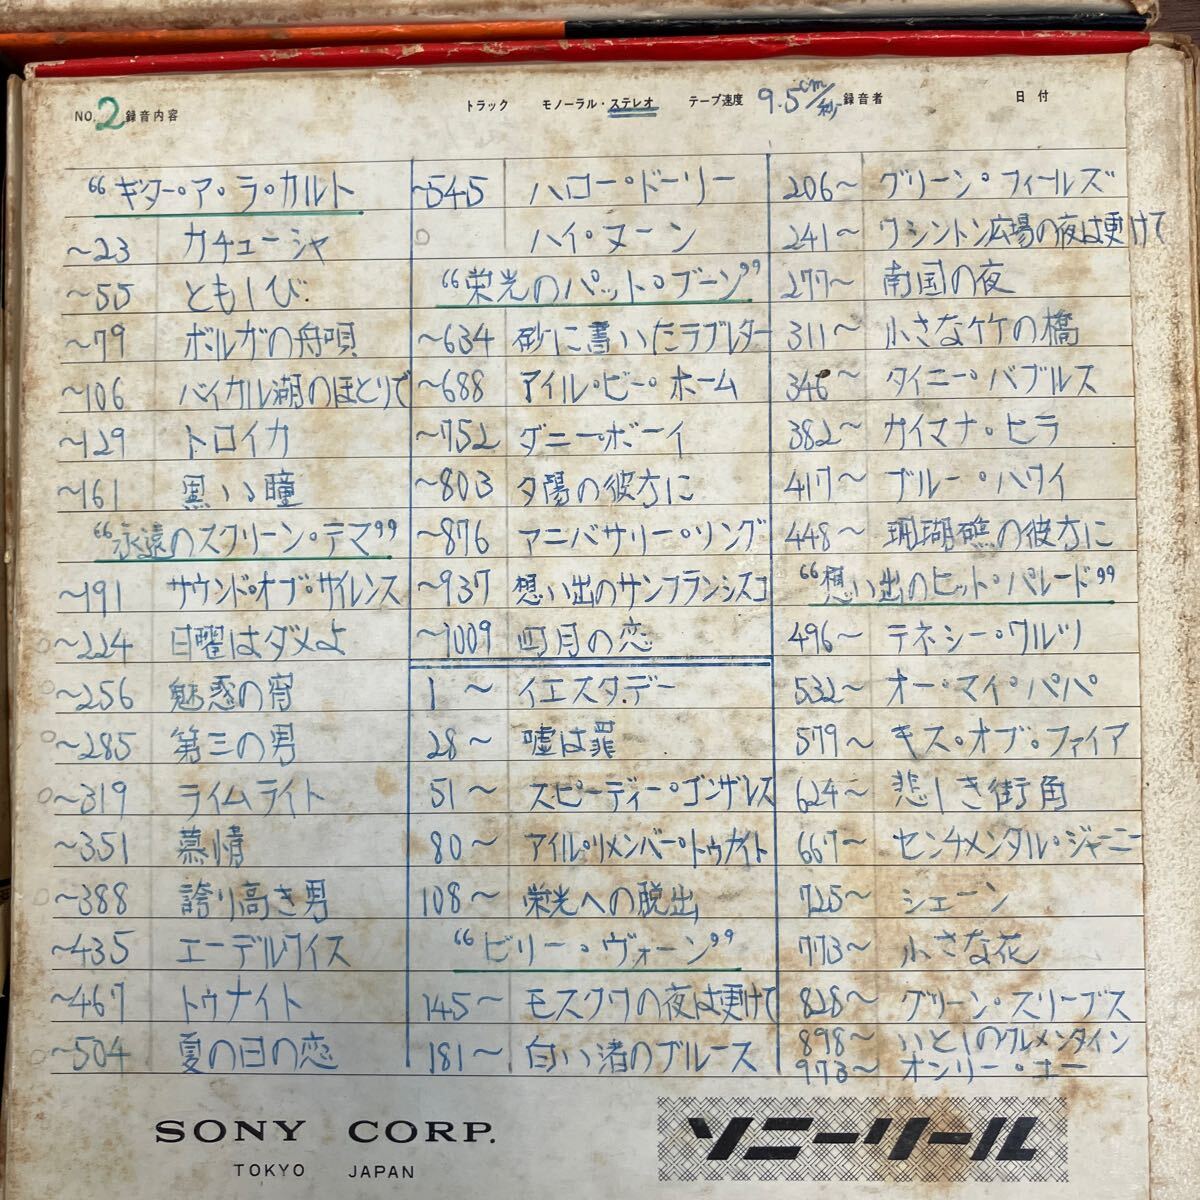 NO. 2 録音内容 トラック モノーラル・ステレオ テープ速度 9.5cm/秒 録音者 日付
“ギター・ア・ラ・カルト
~23 カチューシャ
~55 ともしび
~79 ボルガの舟唄
~106 バイカル湖のほとりで
~129 トロイカ
~161 黒いる瞳
“永遠のスクリーン・テマ”
~191 サウンド・オブ・サイレンス
~224 日曜はダメよ
~256 魅惑の宵
~285 第三の男
~319 ライムライト
~351 慕情
~388 誇り高き男
~435 エーデルワイス
~467 トゥナイト
~504 夏の日の恋
~545 ハロー・ドーリー
ハイ・ヌーン
“栄光のパット・ブーン”
~634 砂に書いたラブレター
~688 アイル・ビー・ホーム
~752 ダニー・ボーイ
~803 夕陽の彼方に
~876 アニバサリー・ソング
~937 想い出のサンフランシスコ
~1009 四月の恋
1~ イエスタデー
28~ 嘘は罪
51~ スピーディー・ゴンザレス
80~ アイル・リメンバー・トゥナイト
108~ 栄光への脱出
“ビリー・ヴォーン”
145~ モスクワの夜は更けて
181~ 白い渚のブルース
206~ グリーン・フィールズ
241~ ワシントン広場の夜は更けて
277~ 南国の夜
311~ 小さな竹の橋
346~ タイニー・バブルス
382~ カイマナ・ヒラ
417~ ブルー・ハワイ
448~ 珊瑚礁の彼方に
“想い出のヒット・パレード”
496~ テネシー・ワルツ
532~ オー・マイ・パパ
579~ キス・オブ・ファイア
624~ 悲しき街角
667~ センチメンタル・ジャーニー
725~ シェーン
773~ 小さな花
828~ グリーン・スリーブス
898~ いとしのクレメンタイン
973~ オンリー・ユー
SONY CORP.
TOKYO JAPAN
ソニーリール